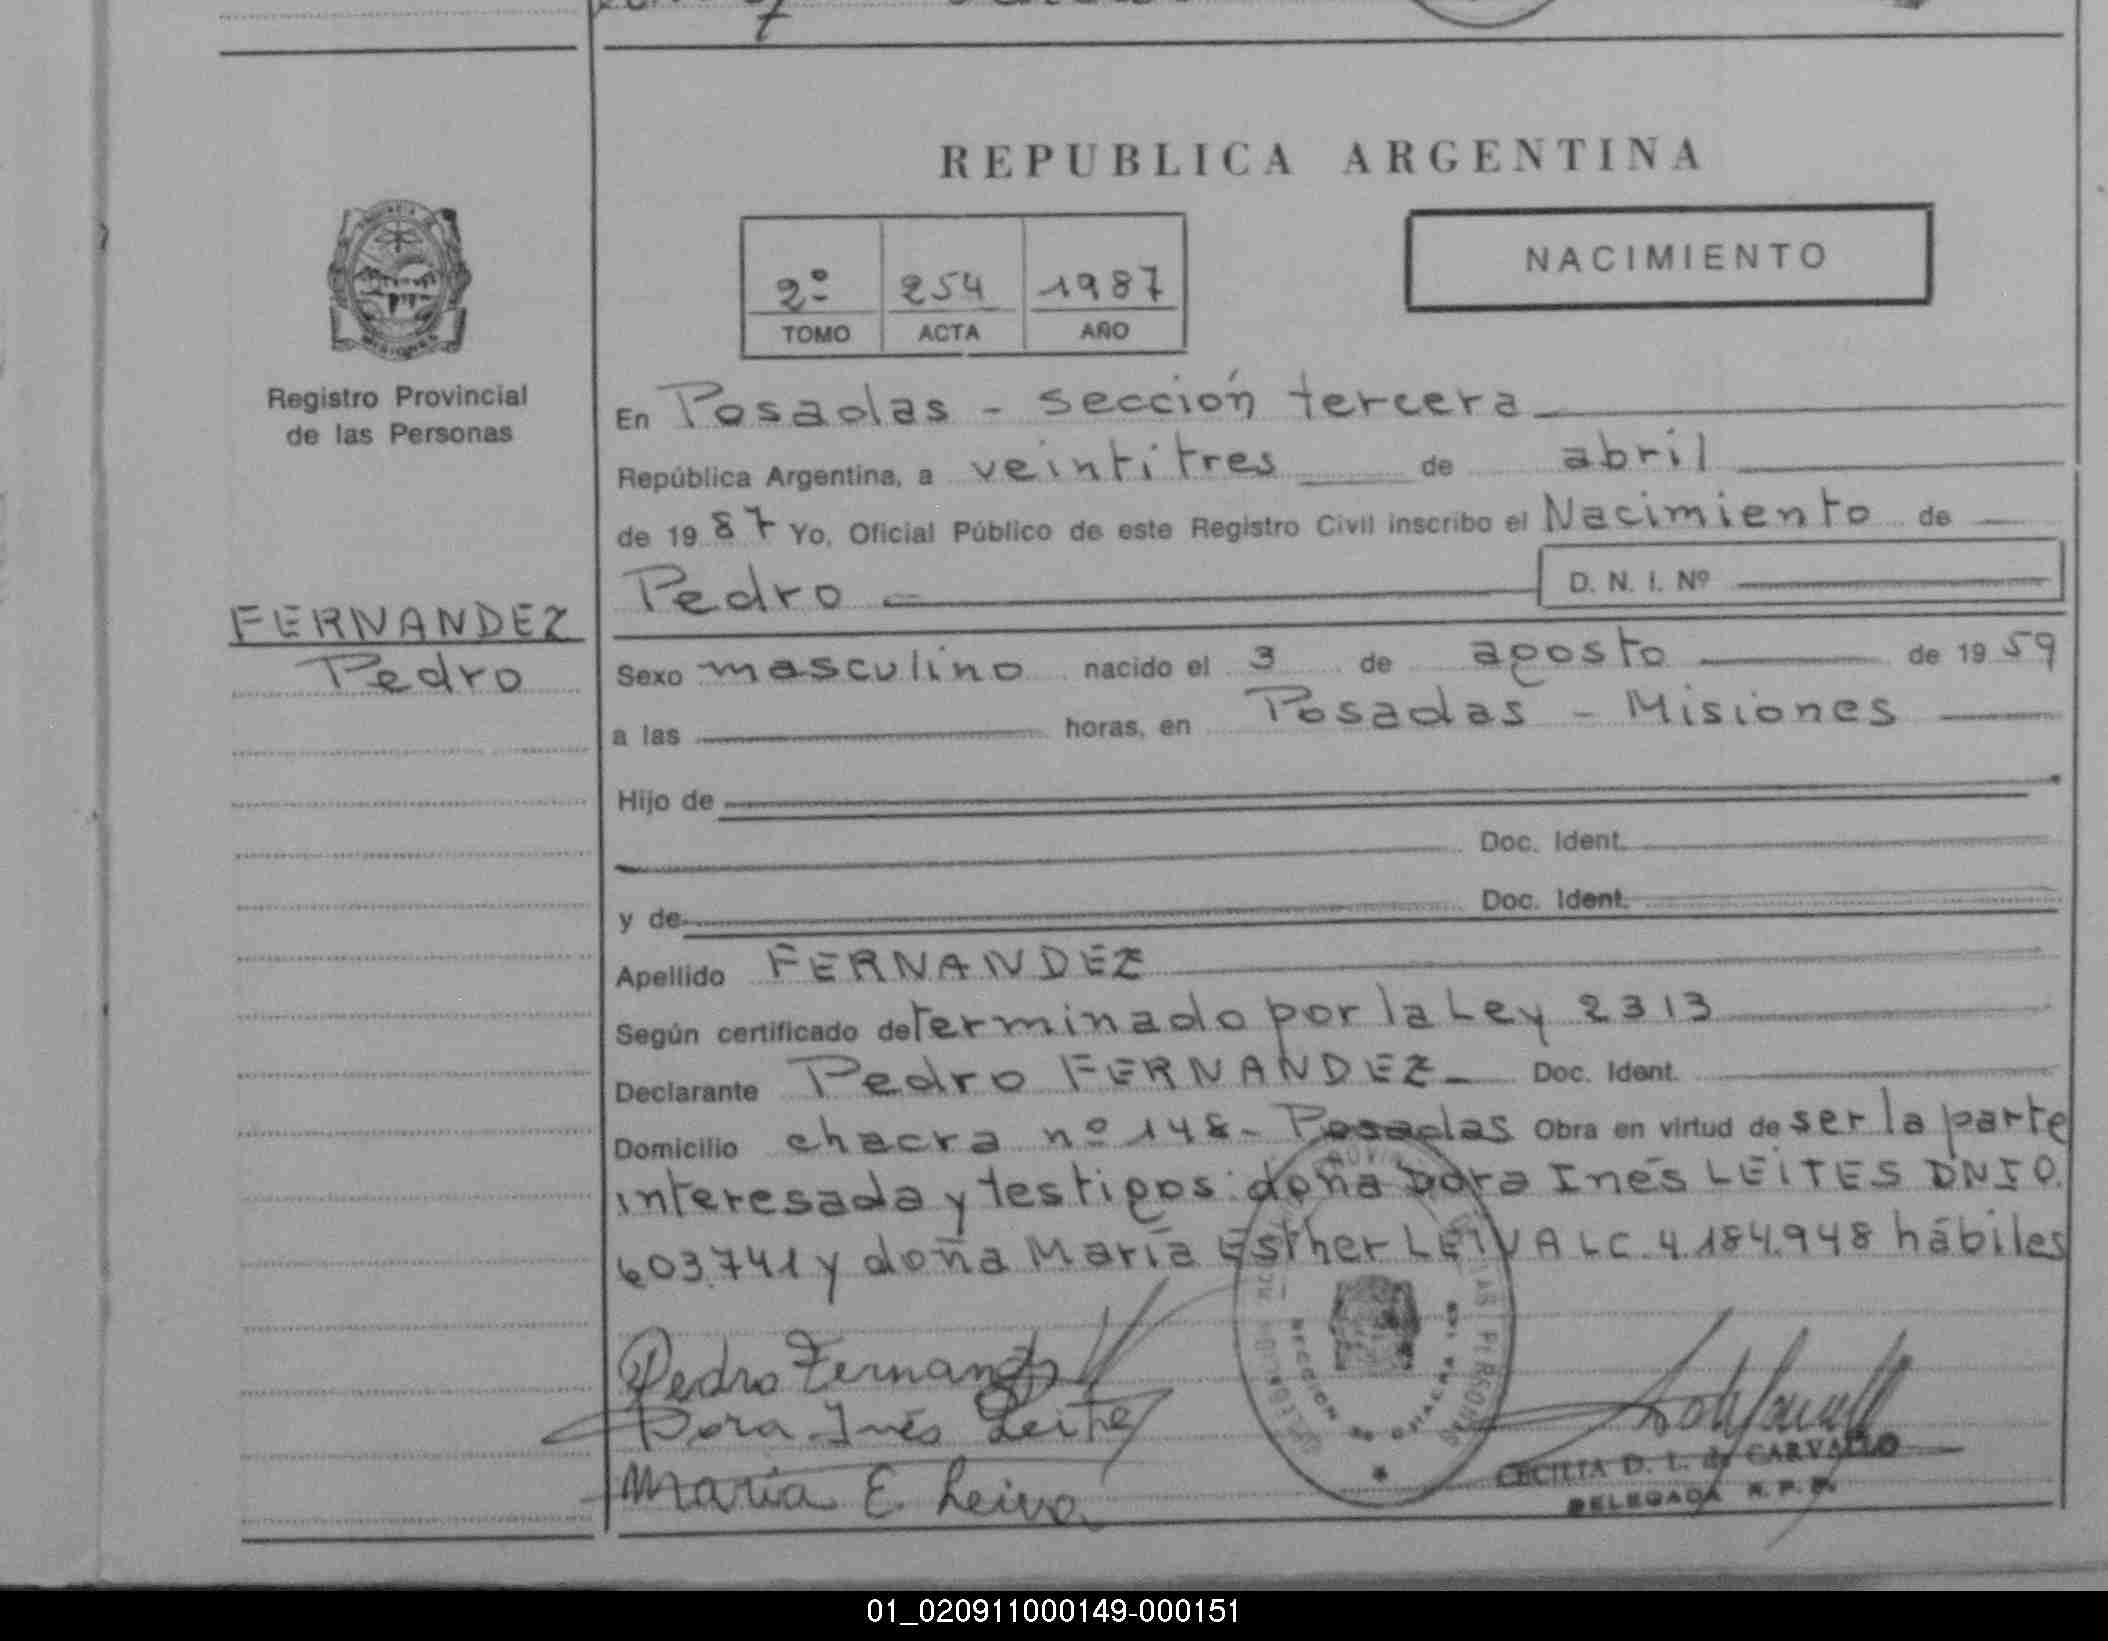 REPUBLICA ARGENTINA
NACIMIENTO
2º 254 1987
TOMO ACTA AÑO
Registro Provincial
de las Personas
En Posadas - sección tercera
República Argentina, a veintitres de abril
de 1987 Yo, Oficial Público de este Registro Civil inscribo el Nacimiento de
Pedro D. N. I. Nº
FERNANDEZ
Pedro
Sexo masculino nacido el 3 de agosto de 1959
a las horas, en Posadas - Misiones
Hijo de
Doc. Ident.
y de Doc. Ident.
Apellido FERNANDEZ
Según certificado determinado por la Ley 2313
Declarante Pedro FERNANDEZ Doc. Ident.
Domicilio chacra nº 148 - Posadas Obra en virtud de ser la parte
interesada y testigos: doña Dora Inés LEITES DNI 0.
603.741 y doña María Esther LEIVA LC. 4.184.948 hábiles
Pedro Fernandez
Dora Inés Leites
María E. Leiva
CECILIA D. L. de CARVALLO
DELEGADA R. P. P.
01_020911000149-000151